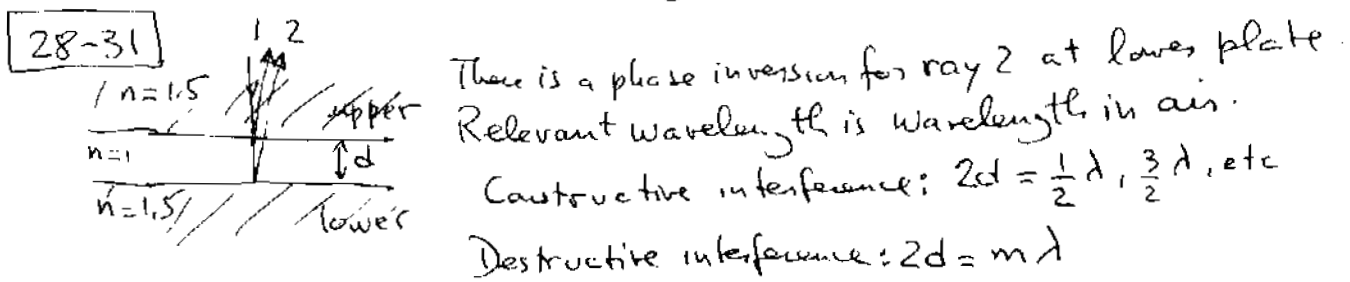 28-31
1 2
n=1.5
upper
n=1
d
n=1.5
lower
There is a phase inversion for ray 2 at lower plate.
Relevant wavelength is wavelength in air.
Constructive interference: 2d = 1/2 λ, 3/2 λ, etc
Destructive interference: 2d = m λ